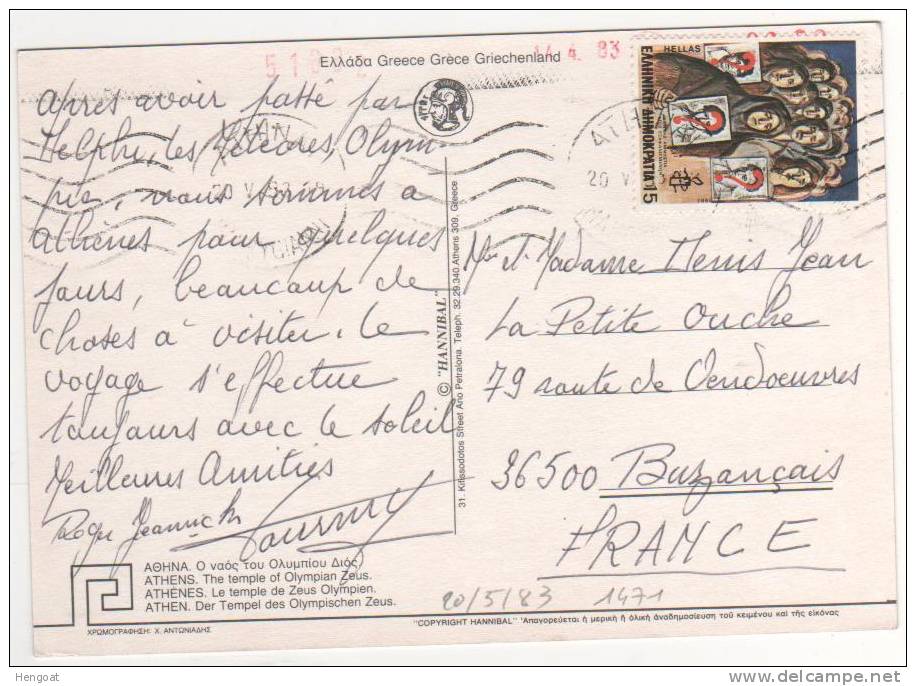 Ελλάδα Greece Grèce Griechenland
4. 83
HELLAS
ΕΛΛΗΝΙΚΗ ΔΗΜΟΚΡΑΤΙΑ
15
20 V
après avoir passé par
Delphe, les Météores, Olym-
pie, nous sommes à
athènes pour quelques
jours, beaucoup de
choses à visiter. le
voyage s'effectue
toujours avec le soleil
Meilleures Amitiés
Roger Jeannick
Mr et Madame Denis Jean
La Petite Ouche
79 route de Vendoeuvres
36500 Buzançais
FRANCE
© "HANNIBAL"
31. Kifissodotos Street Ano Petralona. Teleph. 32.29.340. Athens 309. Greece
ΑΘΗΝΑ. Ο ναός του Ολυμπίου Διός.
ATHENS. The temple of Olympian Zeus.
ATHÈNES. Le temple de Zeus Olympien.
ATHEN. Der Tempel des Olympischen Zeus.
ΧΡΩΜΟΓΡΑΦΗΣΗ: Χ. ΑΝΤΩΝΙΑΔΗΣ
20/5/83 1471
"COPYRIGHT HANNIBAL" Ἀπαγορεύεται ἡ μερική ἤ ὁλική ἀναδημοσίευση τοῦ κειμένου καί τῆς εἰκόνας
Hengoat
www.delcampe.net